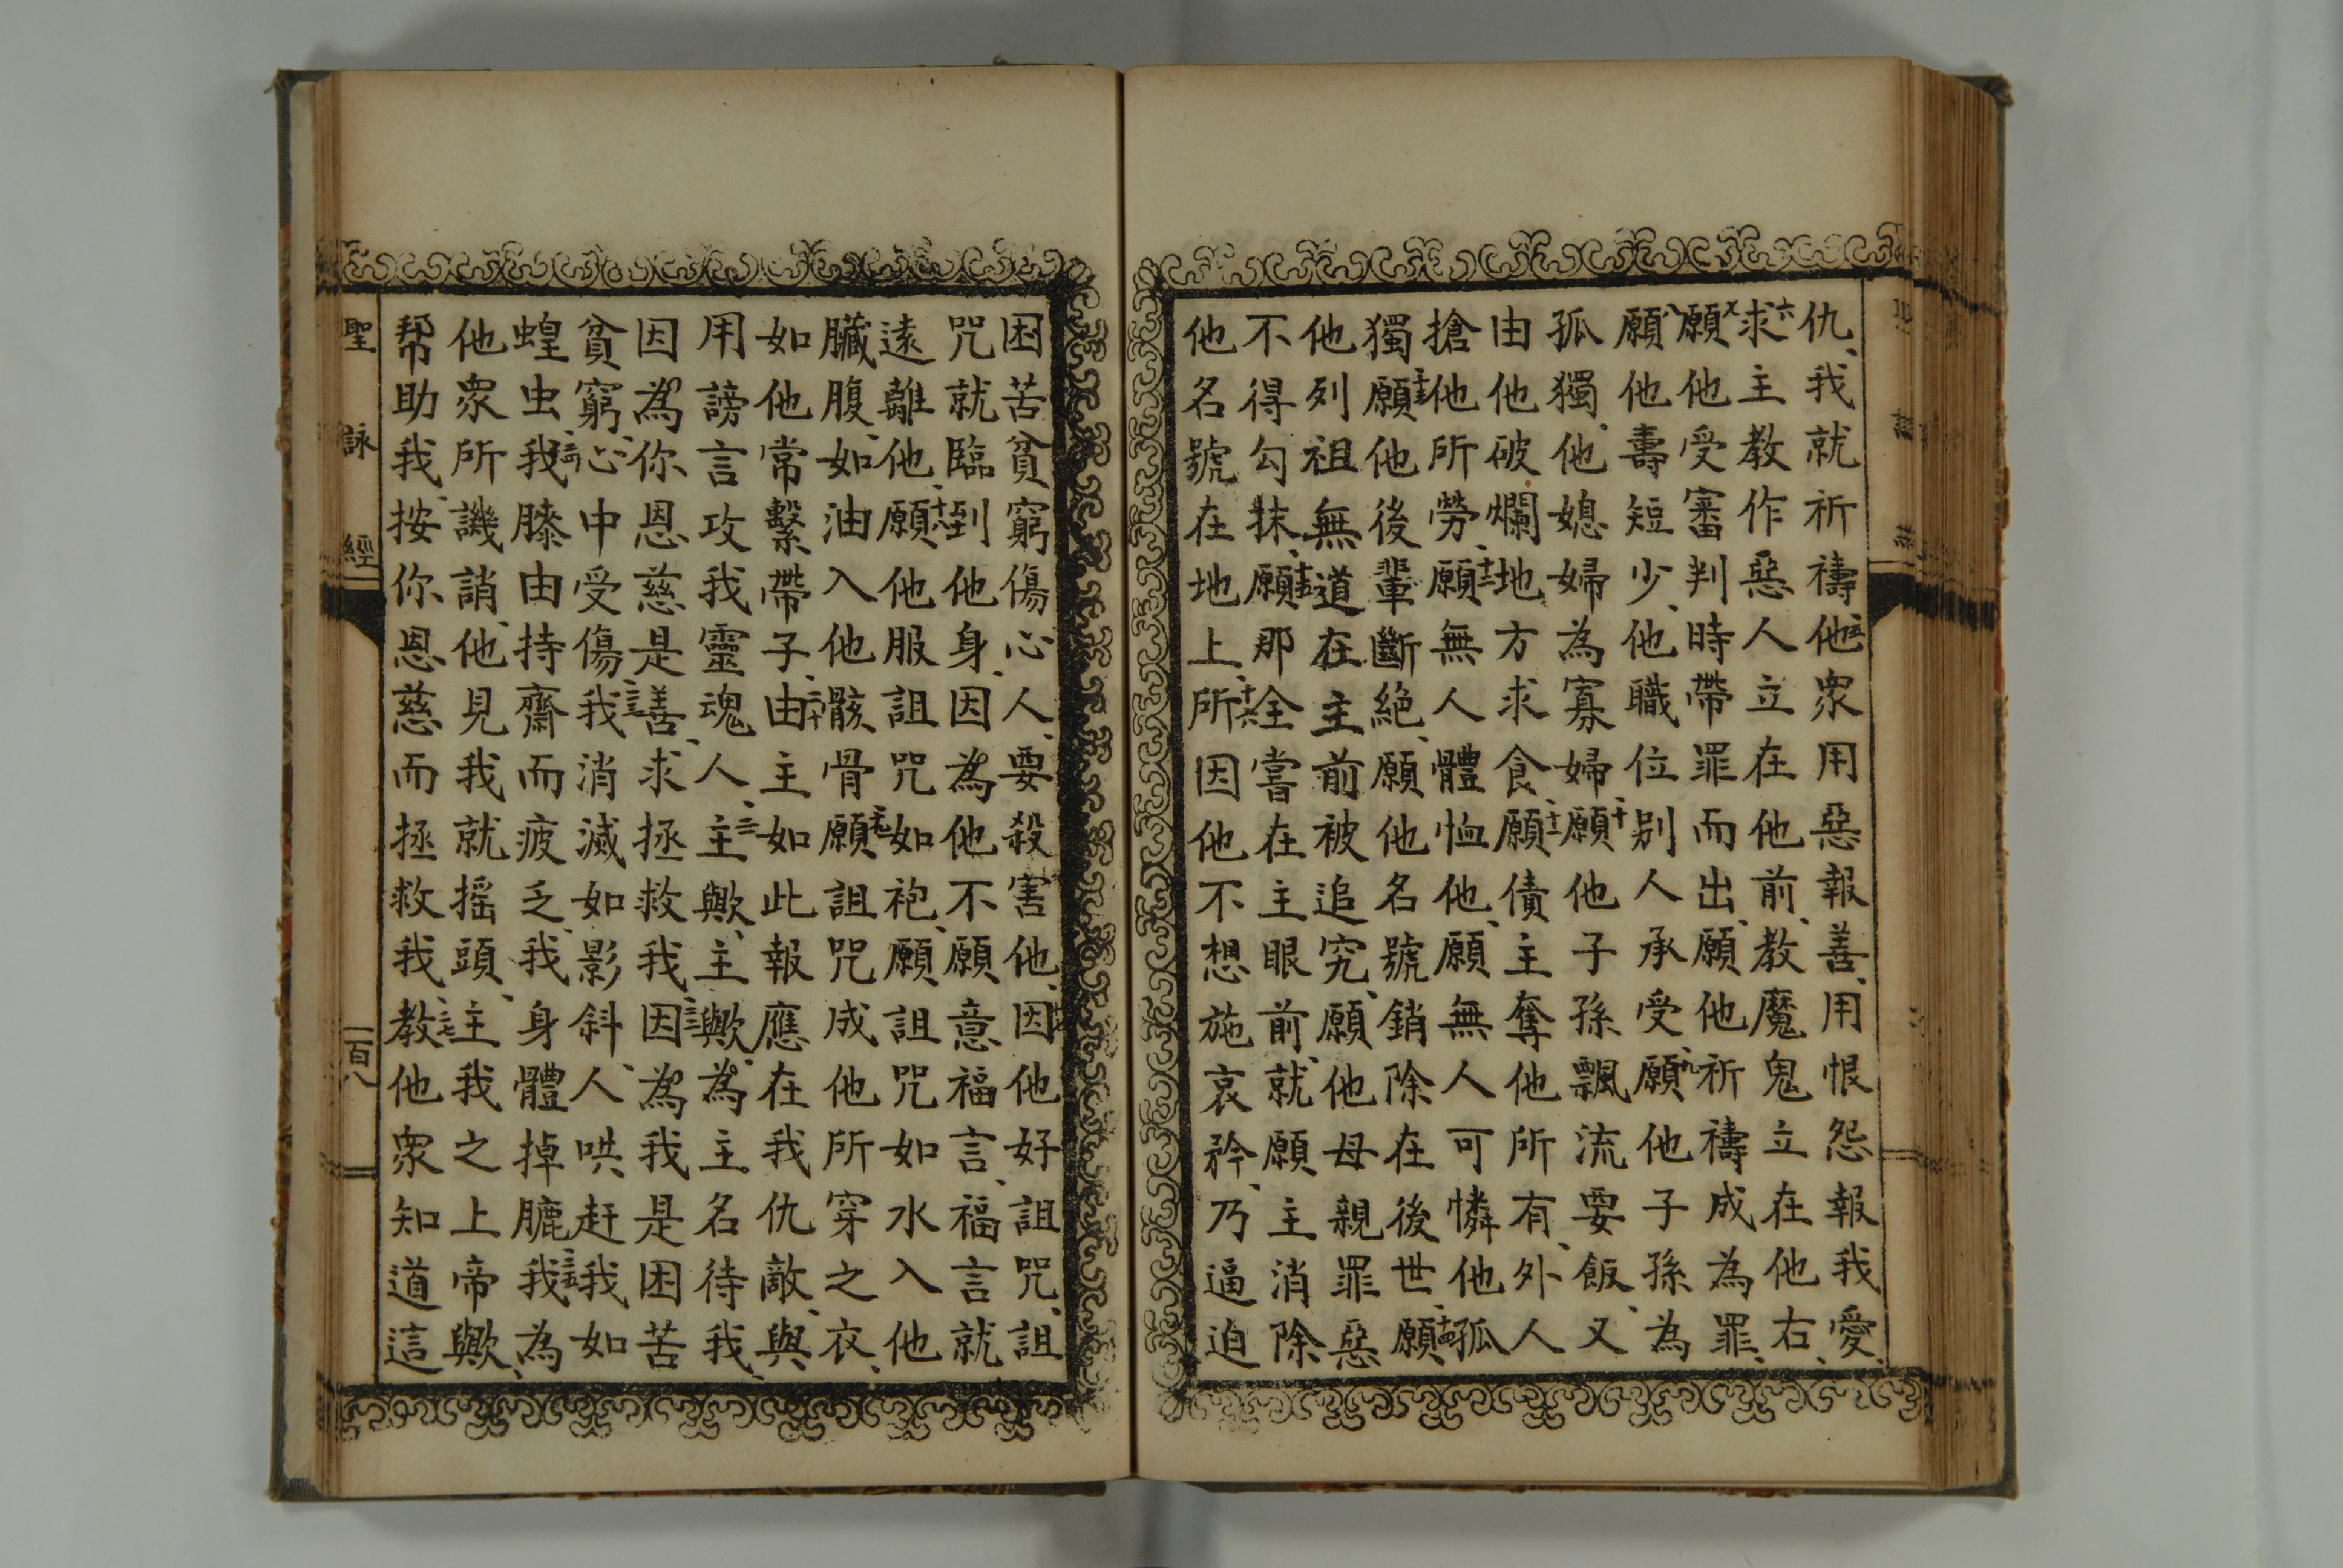 仇、我就祈禱、五他衆用惡報善、用恨怨報我愛、
六求主教作惡人立在他前、教魔鬼立在他右、
七願他受審判時帶罪而出、願他祈禱成為罪、
八願他壽短少、他職位別人承受、九願他子孫為
孤獨、他媳婦為寡婦、十願他子孫飄流要飯、又
由他破爛地方求食、十一願債主奪他所有、外人
搶他所勞、十二願無人體恤他、願無人可憐他孤
獨、十三願他後輩斷絶、願他名號銷除在後世、十四願
他列祖無道在主前被追究、願他母親罪惡
不得勾抹、十五願那全嘗在主眼前、就願主消除
他名號在地上、十六所因他不想施哀矜、乃逼迫
困苦貧窮傷心人、要殺害他、十七因他好詛咒、詛
咒就臨到他身、因為他不願意福言、福言就
遠離他、十八願他服詛咒如袍、願詛咒如水入他
臟腹、如油入他骸骨、十九願詛咒成他所穿之衣、
如他常繫帶子、二十由主如此報應在我仇敵、與
用謗言攻我靈魂人、二一主歟、主歟、為主名待我、
因為你恩慈是善、求拯救我、二二因為我是困苦
貧窮、心中受傷、二三我消滅如影斜、人哄赶我如
蝗虫、二四我膝由持齋而疲乏、我身體掉臕、二五我為
他衆所譏誚、他見我就摇頭、二六主我之上帝歟、
帮助我、按你恩慈而拯救我、二七教他衆知道這
聖詠經
一百八